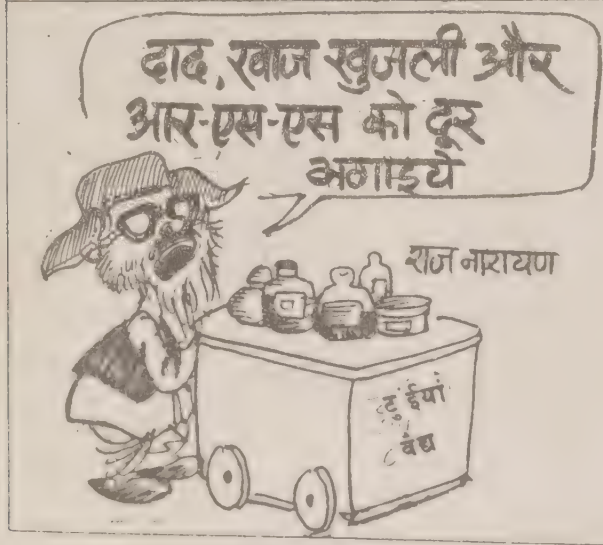 दाद, खाज खुजली और
आर-एस-एस को दूर
भगाइये
राज नारायण
टुईयां
वैद्य